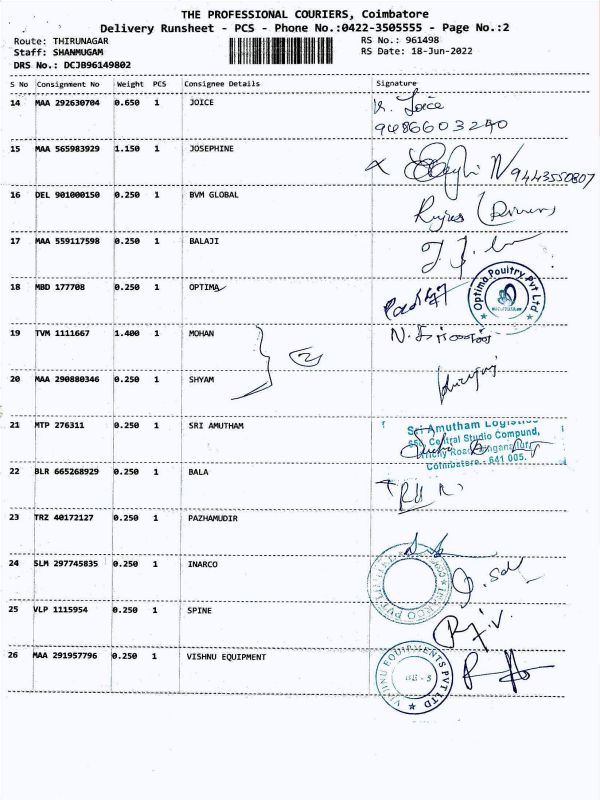 THE PROFESSIONAL COURIERS, Coimbatore
Delivery Runsheet - PCS - Phone No.:0422-3505555 - Page No.:2
Route: THIRUNAGAR RS No.: 961498
Staff: SHANMUGAM RS Date: 18-Jun-2022
DRS No.: DCJB96149802
S No Consignment No Weight PCS Consignee Details Signature
14 MAA 292630704 0.650 1 JOICE
Joice
9486603240
15 MAA 565983929 1.150 1 JOSEPHINE
9443550807
16 DEL 901000150 0.250 1 BVM GLOBAL
17 MAA 559117598 0.250 1 BALAJI
18 MBD 177708 0.250 1 OPTIMA
Optima Poultry Pvt Ltd
19 TVM 1111667 1.400 1 MOHAN
2
20 MAA 290880346 0.250 1 SHYAM
21 MTP 276311 0.250 1 SRI AMUTHAM
Sri Amutham Logistics
Central Studio Compund,
Coimbatore - 641 005.
22 BLR 665268929 0.250 1 BALA
23 TRZ 40172127 0.250 1 PAZHAMUDIR
24 SLM 297745835 0.250 1 INARCO
INARCO PVT LIMITED
25 VLP 1115954 0.250 1 SPINE
26 MAA 291957796 0.250 1 VISHNU EQUIPMENT
EQUIPMENTS PVT LTD